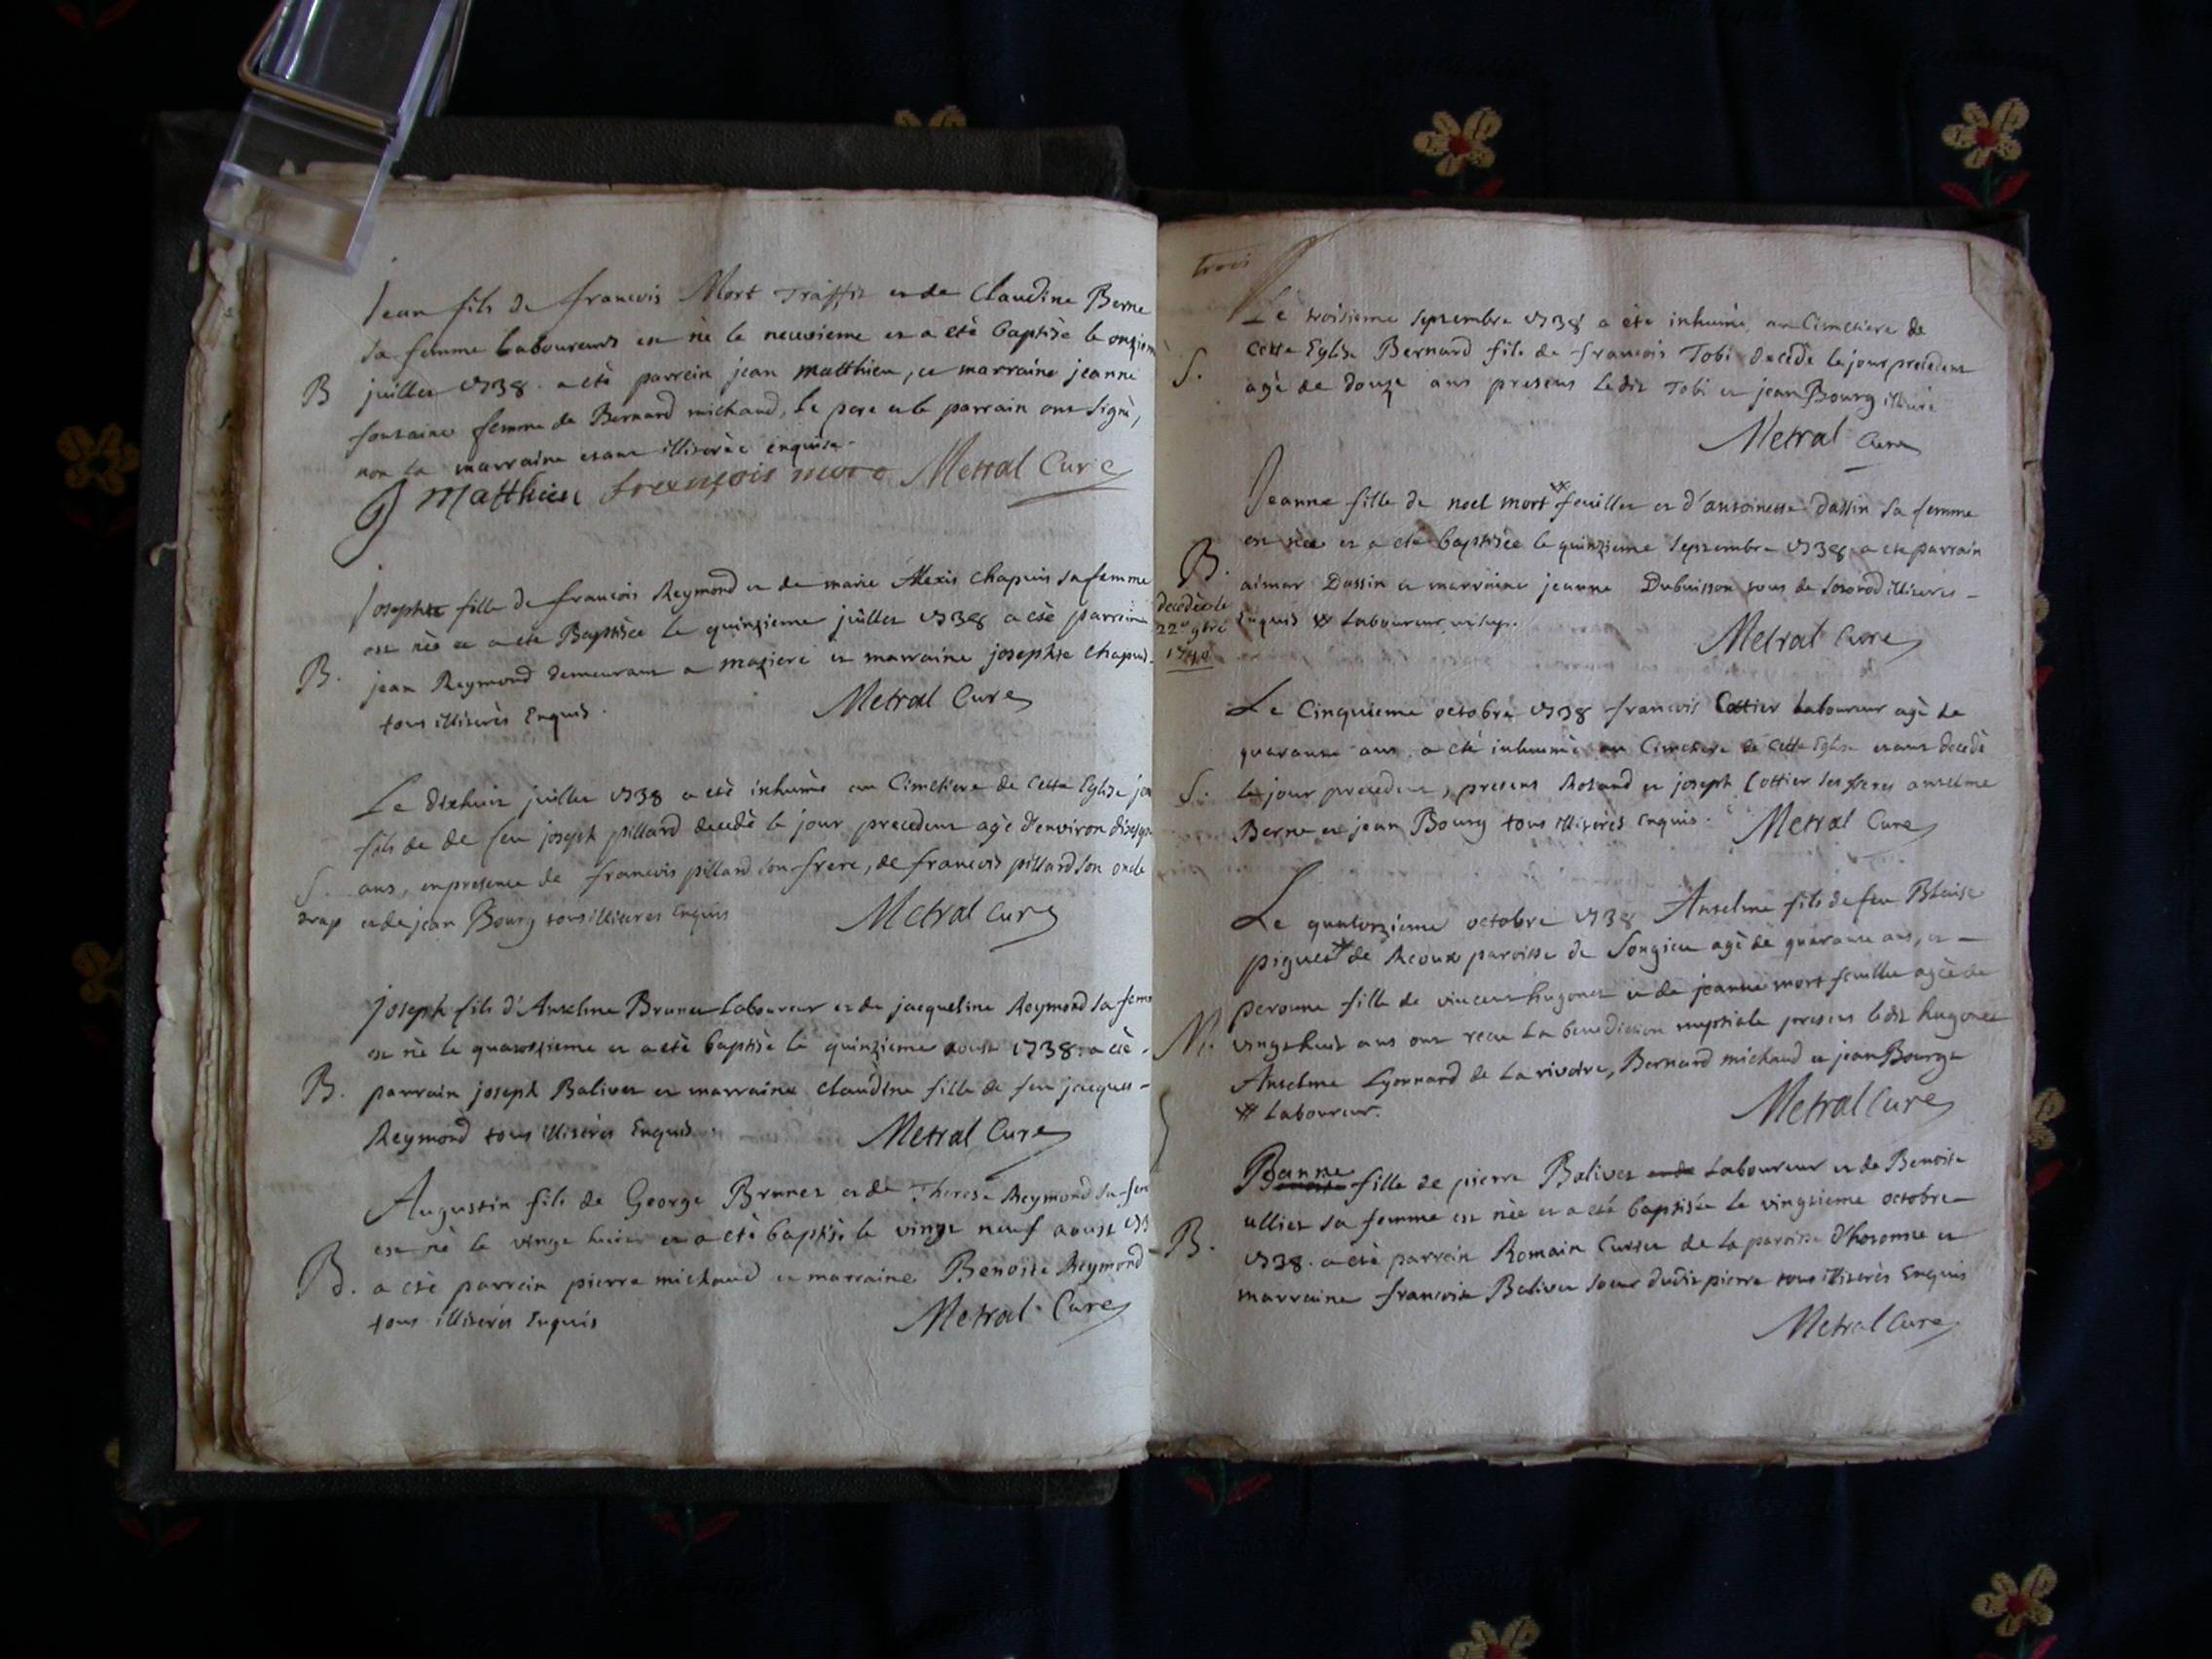 Jean fils de francois Mort Traffit et de Claudine Berne
sa femme laboureurs est né le neuvieme et a eté baptisé le onziem
B juillet 1738. a eté parrein jean matthieu, et marraine jeanne
fontaine femme de Bernard michaud, le pere et le parrain ont signé,
non la marraine etant illiterée enquise.
J Matthieu francois mort Metral Curé
Josephte fille de francois Reymond et de marie Alexis chapuis sa femme
est née et a eté Baptisée le quinzieme juillet 1738 a eté parrein
B. jean Reymond demeurant a maziere et marraine josephte chapuis
tous illiterés Enquis. Metral Curé
Le dixhuit juillet 1738 a eté inhumé au Cimetiere de cette Eglise
fils de de feu joseph pillard decedé le jour precedent agé d'environ
S. ans, en presence de francois pillard son frere, de francois pillard son oncle
drap et de jean Bourg tous illiteres Enquis Metral Curé
Joseph fils d'Anselme Brunet Laboureur et de jacqueline Reymond sa fem
est né le quatorzieme et a eté baptisé le quinzieme aoust 1738. a eté
B. parrain joseph Balivet et marraine claudine fille de feu jacques -
Reymond tous illiterés Enquis. Metral Curé
Augustin fils de George Brunet et de Therese Reymond sa fem
est né le vingt huit et a eté baptisé le vingt neuf aoust 173
B. a eté parrein pierre michaud et marraine Benoite Reymond
tous illiterés Enquis Metral Curé
trois
Le troisieme septembre 1738 a eté inhumé au Cimetiere de
cette Eglise Bernard fils de francois Tobi decedé le jour precedent
S. agé de douze ans presens ledit Tobi et jean Bourg
Metral Curé
Jeanne fille de noel mort feuillet et d'antoinette Dassin sa femme
est née et a eté baptisée le quinzieme septembre 1738. a eté parrain
B. aimar Dassin et marraine jeanne Dubuisson tous de illiteres -
decedée le
22e 9bre
1740
Enquis # Laboureur
Metral Curé
Le Cinquieme octobre 1738 francois Cottier Laboureur agé de
quarante ans a eté inhumé au Cimetiere de cette Eglise etant decedé
S. le jour precedent, presens Roland et joseph Cottier ses freres anselme
Berne et jean Bourg tous illiterés enquis. Metral Curé
Le quatorzieme octobre 1738 Anselme fils de feu Blaise
piguet # de Reoux paroisse de Songieu agé de quarante ans, et -
peronne fille de vincent hugonet et de jeanne mort feuillet agée de
M. vingthuit ans ont recu la benediction nuptiale presens ledit hugonet
Anselme Lyonnard de la rivoire, Bernard michaud et jean Bourg
# Laboureur. Metral Curé
fille de pierre Balivet Laboureur et de Benoite
ulliet sa femme est née et a eté baptisée le vingtieme octobre
B. 1738. a eté parrein Romain Curtet de la paroisse d'hotonne et
marraine francoise Balivet soeur dudit pierre tous illiterés Enquis
Metral Curé